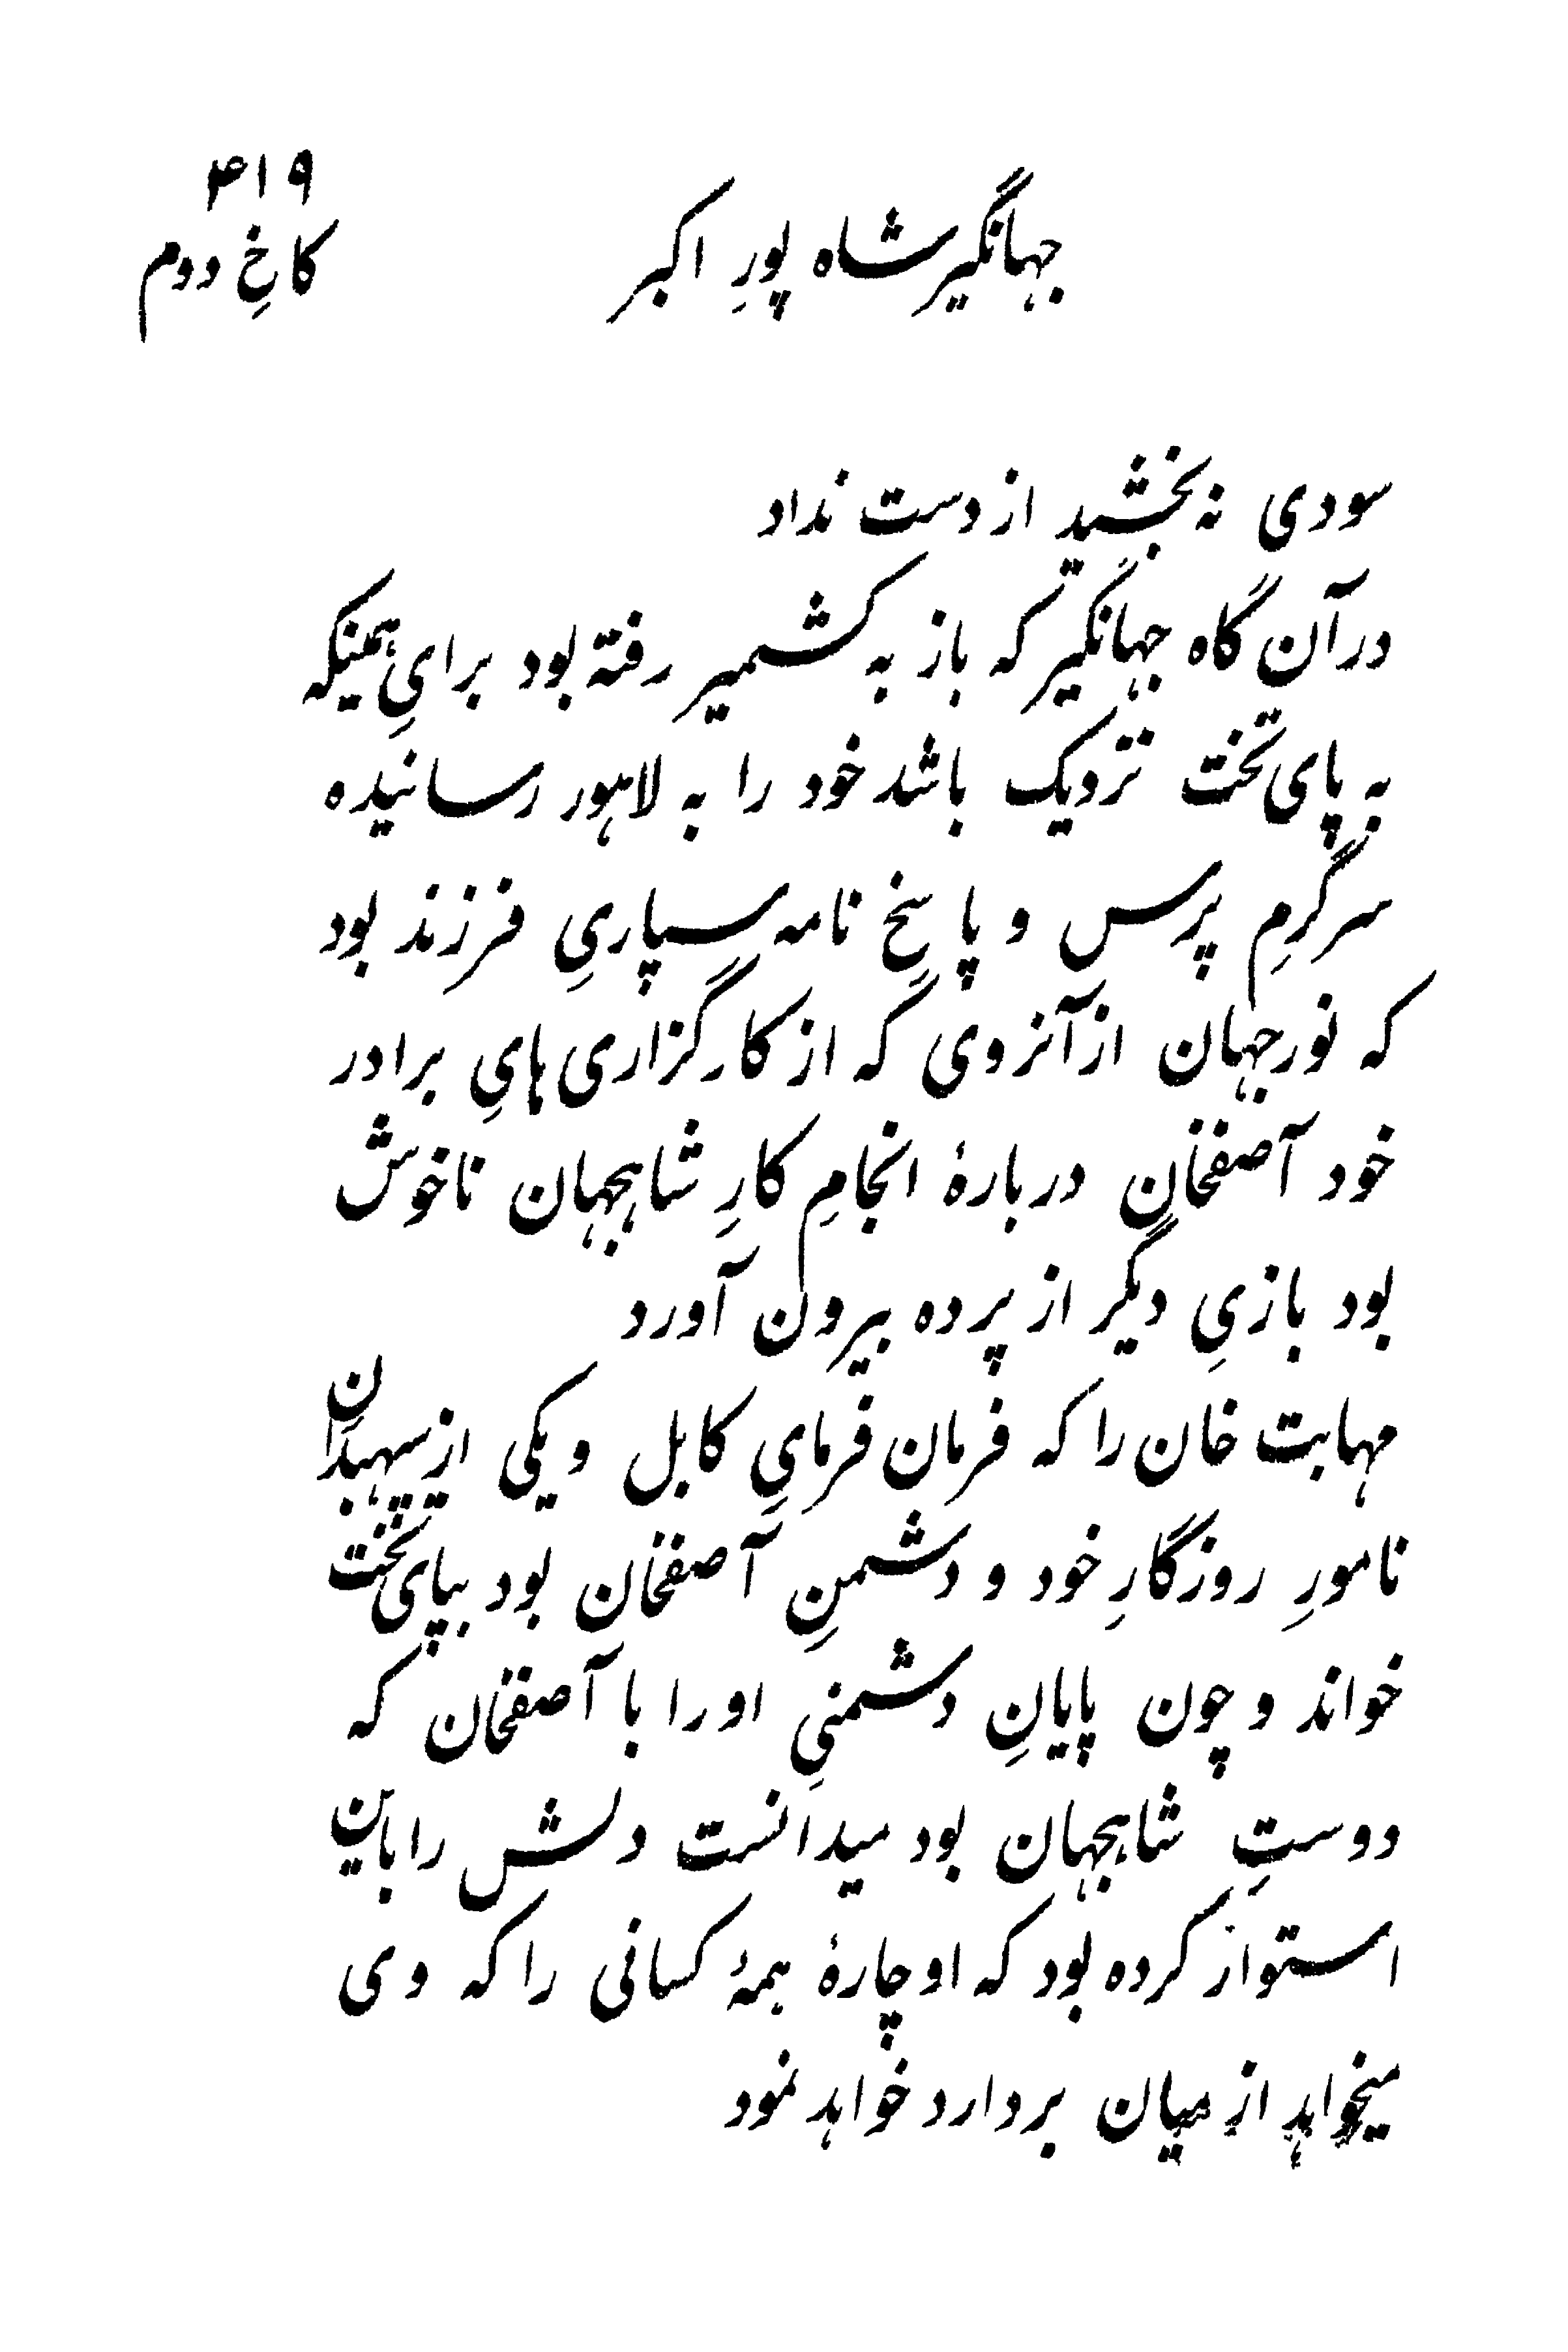 ۴۱۹
جهانگیرشاه پورِ اکبر
کاخِ دوم
سودی نه بخشید از دست نداد
در آن گاه جهانگیر که باز به کشمیر رفته بود برایِ همینکه
به پای تخت نزدیک باشد خود را به لاهور رسانیده
سرگرمِ پرس و پاسخِ نامه سپاریِ فرزند بود
که نورجهان از آنروی که از کارگزاری هایِ برادر
خود آصفخان دربارهٔ انجامِ کارِ شاهجهان ناخوش
بود بازیِ دیگر از پرده بیرون آورد
مهابت خان را که فرمان فرمایِ کابل و یکی از سپهبدانِ
نامورِ روزگارِ خود و دشمنِ آصفخان بود بپای تخت
خواند و چون پایانِ دشمنیِ او را با آصفخان که
دوستِ شاهجهان بود میدانست دلش را باین
استوار کرده بود که او چارهٔ همهٔ کسانی را که وی
میخواهد از میان بردارد خواهد نمود